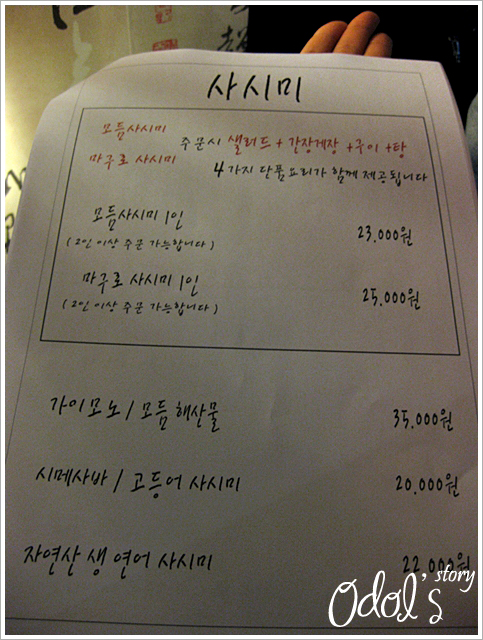 사시미
모듬사시미
마구로 사시미
주문시 샐러드 + 간장게장 +구이 +탕
4가지 단품요리가 함께 제공됩니다
모듬사시미 1인
23,000원
( 2인 이상 주문 가능합니다 )
마구로 사시미 1인
25,000원
( 2인 이상 주문 가능합니다 )
가이모노 / 모듬 해산물
35,000원
시메사바 / 고등어 사시미
20,000원
자연산 생 연어 사시미
22,000원
Odol's story